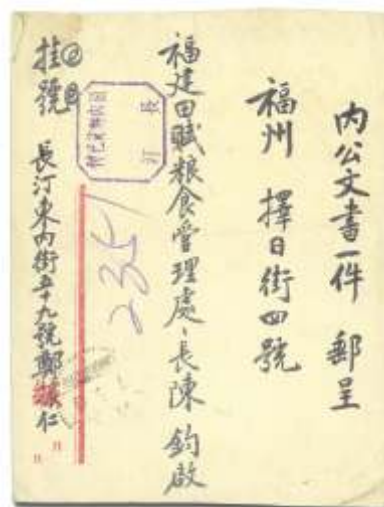 內公文書一件 郵呈
福州 擇日街四號
福建田賦粮食管理處、長陳 鈞啟
長汀
235
掛號
長汀東內街五十九號鄭 仁